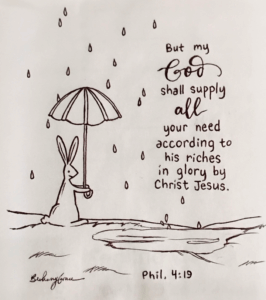 But my
God
shall supply
all
your need
according to
his riches
in glory by
Christ Jesus.
Phil. 4:19